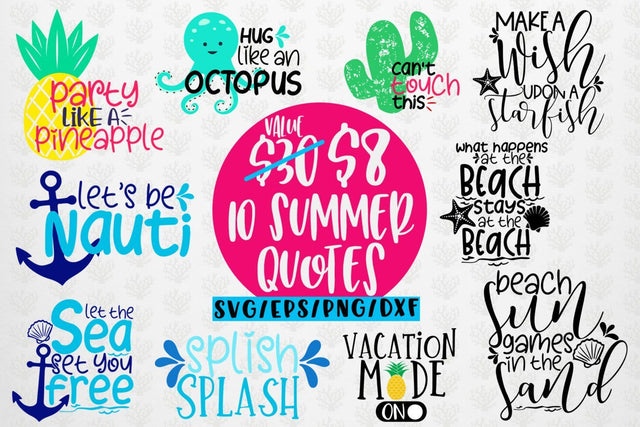 party
LIKE A
pineapple
HUG
like an
OCTOPUS
can't
touch
this
MAKE A
Wish
UPON A
starfish
let's be
Nauti
VALUE
$30 $8
10 SUMMER
QUOTES
SVG/EPS/PNG/DXF
what happens
at the
BEACH
stays
at the
BEACH
let the
Sea
set you
free
splish
SPLASH
VACATION
MODE
ON
beach
sun
games
in the
sand